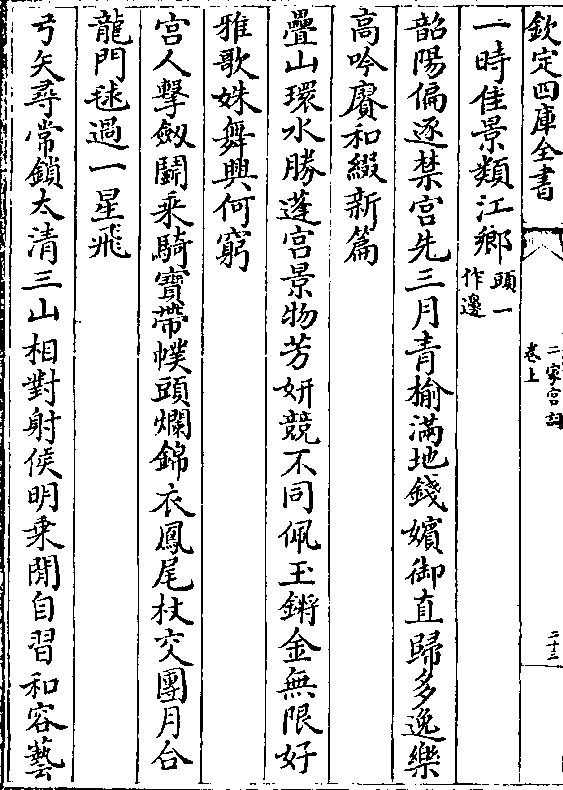 欽定四庫全書
二家宮詞
卷上
二十三
一時佳景類江鄉頭一作邊
韶陽偏逐禁宮先三月青榆滿地錢嬪御直歸多逸樂
高吟賡和綴新篇
疊山環水勝蓬宮景物芳妍競不同佩玉鏘金無限好
雅歌姝舞興何窮
宮人擊劔鬭乘騎寶帶幞頭爛錦衣鳳尾杖交團月合
龍門毬過一星飛
弓矢尋常鎖太清三山相對射侯明乗閒自習和容藝